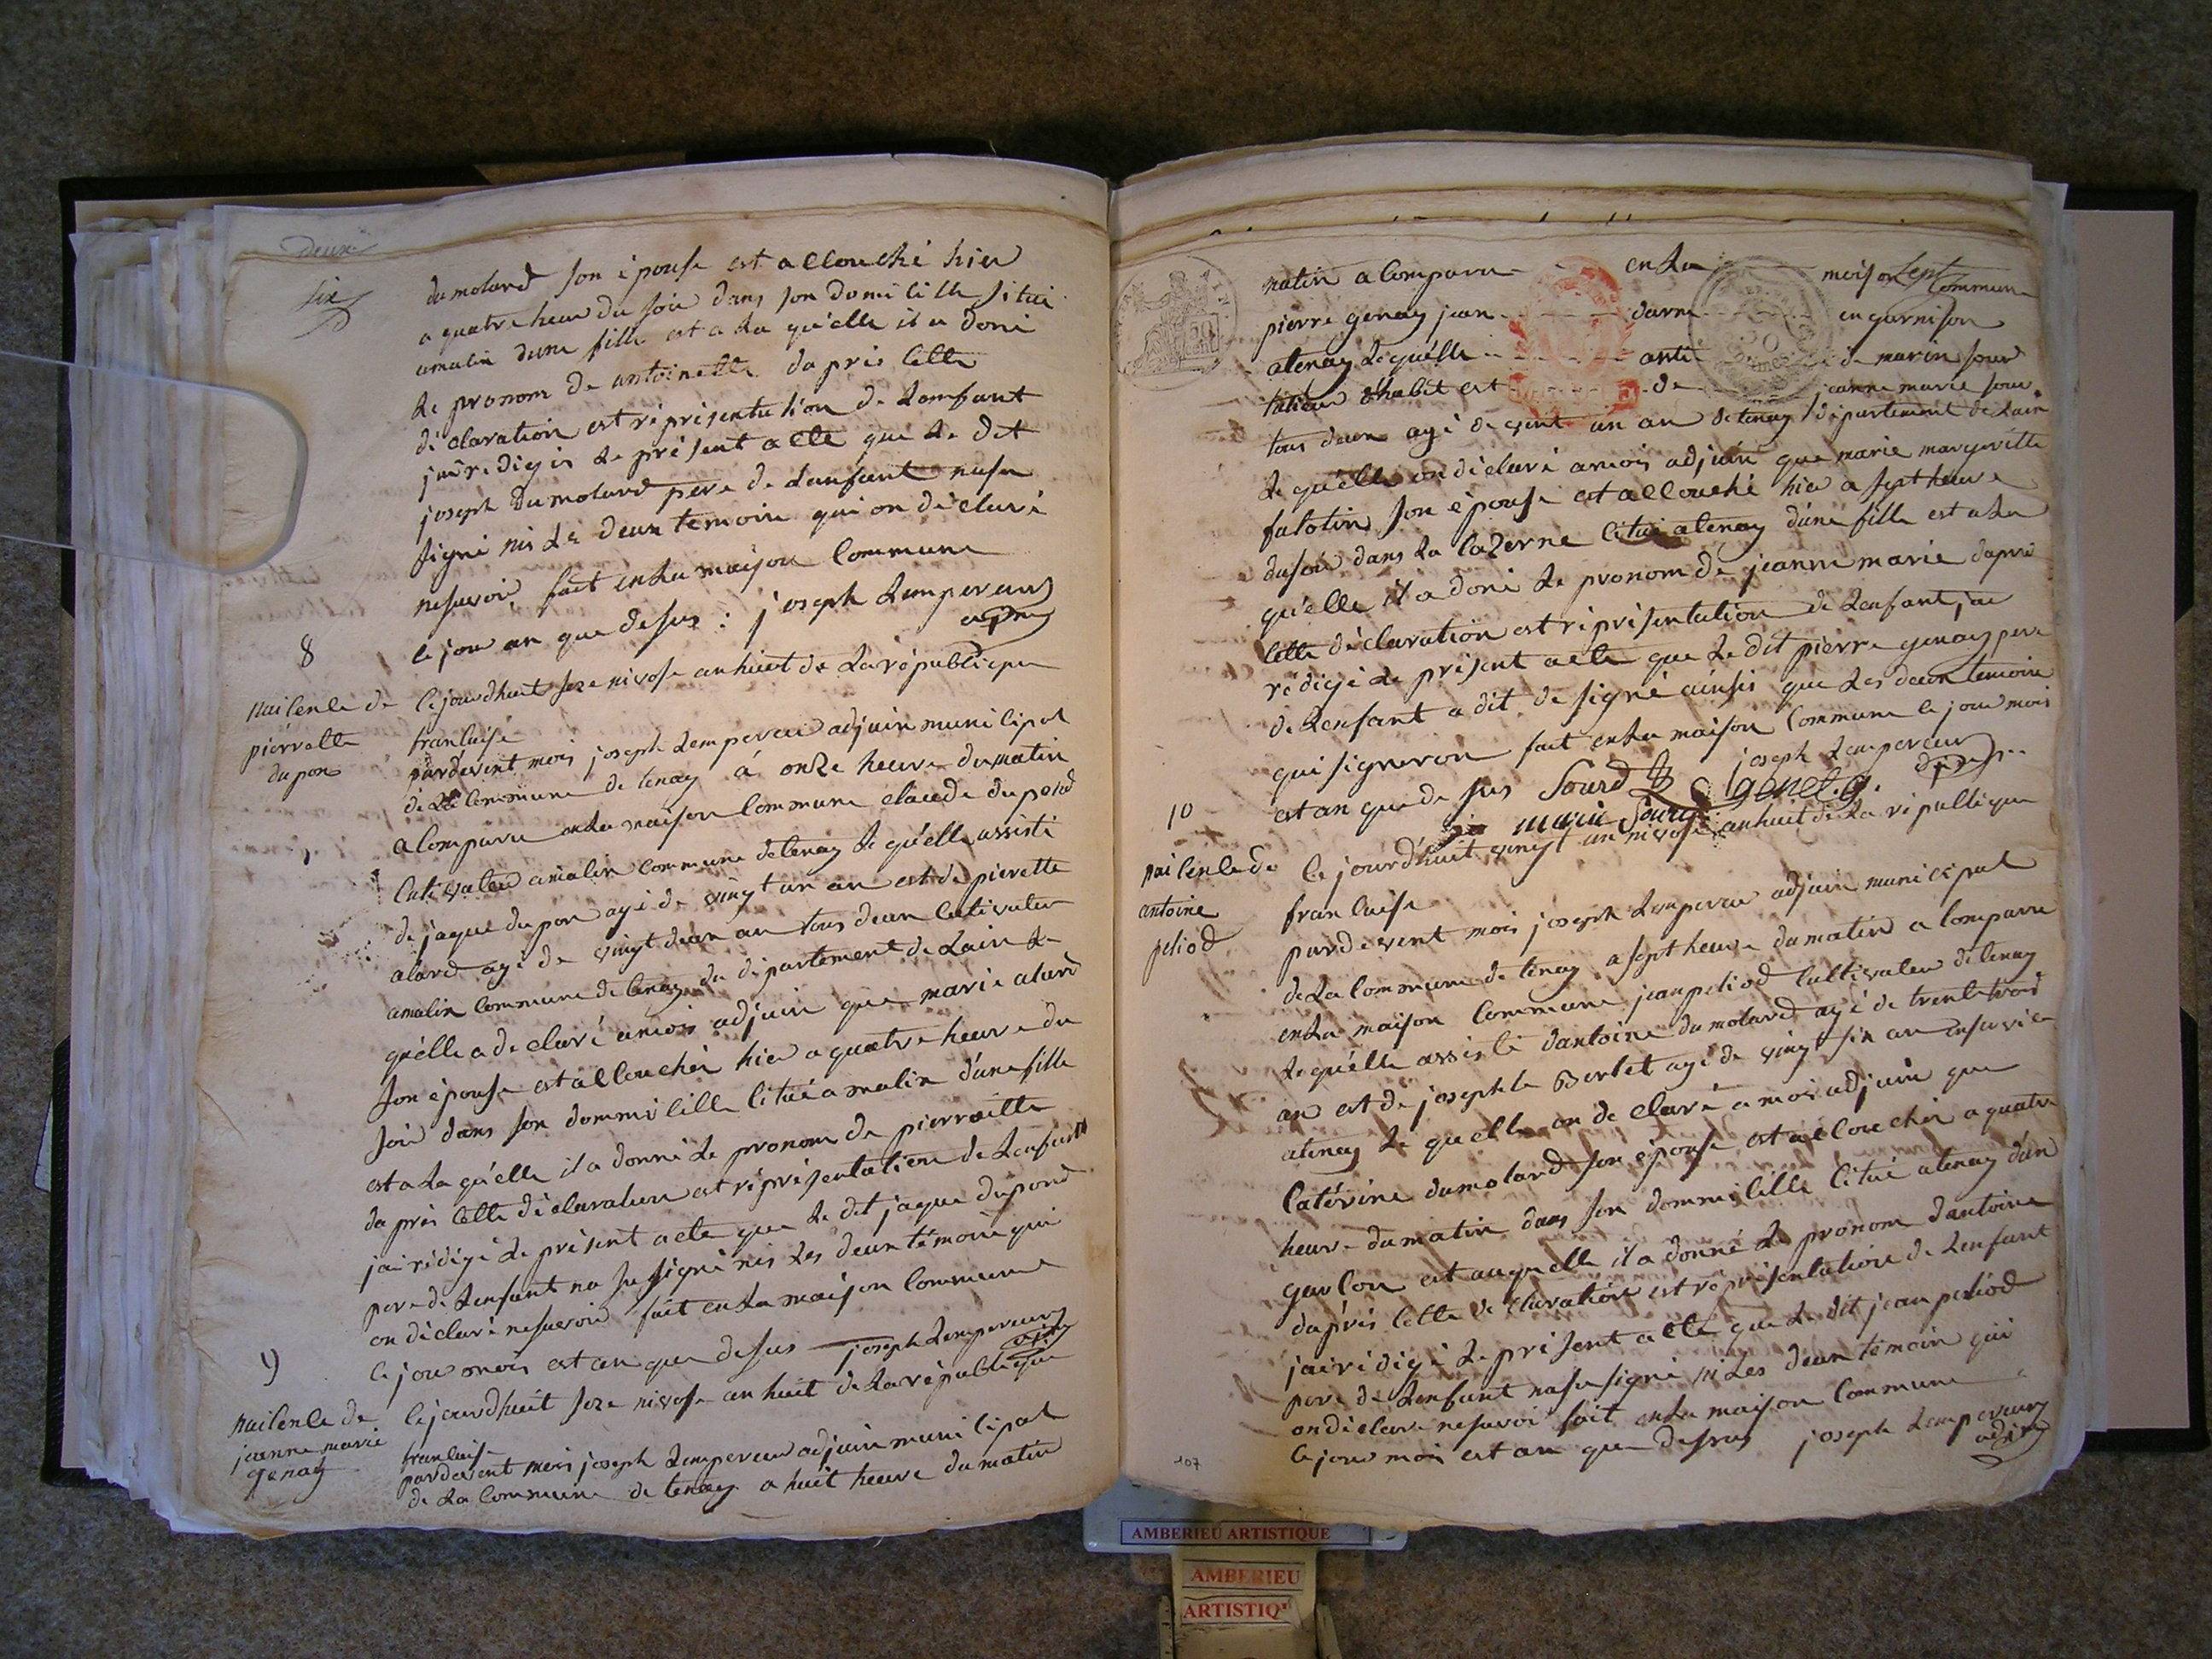 deux
six
dumolard son épouse est allouché hier
a quatre heur du soir dans son domilille situé
amalin dune fille est a la qu'elle il a doné
le pronom de antoinelle dapris lelle
déclaration est réprisentution de lamfant
jaire digis le présent alle que le dit
joseph Dumolard pere de lanfant nasu
signé nis les deux temoin qui on déclaré
nesavoir fait enla maison Commune
le jour an que desus : joseph Lempereur
adjin
8
nailenle de
pierrelle
dupon
le jourdhuit seze nivose an huit de la république
franlaise
pardevent mois joseph Lempereur adjuin munilipal
de la Commune de tenay á onze heure dumatin
alomparu enla maison Commune claude dupond
lultivateur amalin Commune detenay le qu'elle assisté
de jaque dupon agé de vingt un an est de pierette
alard agé de vingt deux an tous deux lultivateur
amalin Commune de tenay du département de lain le
qu'elle a declaré amois adjuin que marie alard
son épouse est allouchér hier a quatre heure du
soir dans son dommilille litué a malin d'une fille
est a la qu'elle il a donné le pronom de pierraitte
da prés lelle déclaration est réprisentation de Lenfant
jai rédigé le présent acte que le dit jaque dupond
pere de Lenfant na su signé nis les deux témoin qui
on déclaré nesavoir fait en la maison Commune
le jour mois est an que desus joseph Lempereur
adjin
9
nailenle de
jeanne marie
genay
le jourdhuit seze nivose an huit de la république
franlaise
pardevent mois joseph Lempereur adjuin munilipal
de la Commune de tenay a huit heure du matin
sept
matin a lomparu enla maison Commune
pierre genay jean darm en garnison
atenay le qu'elle asisté de marin sourd
tailieur d'habit est de jeanne marie sour
tous deux agé de vint un an de tenay département de lain
le qu'elle on déclaré amois adjuin que marie margueritte
falotin son épouse est allouché hier a sept heure
dusoir dans la lazerne litué atenay d'une fille est a la
qu'elle il a doné le pronom de jeanne marie dapré
lelle déclaration est réprisentution de Lenfant jai
rédigé le présent acte que le dit pierre genay pere
de Lenfant a dit de signé ainsis que les deux temoin
qui signeron fait enla maison Commune le jour mois
est an que de sus Sourd genet.g. joseph Lempereur
marie Sourd adjin
10
nailenle de
antoine
peliod
le jourd'huit vingt un nivose an huit de la république
franlaise
pardevent mois joseph Lempereur adjuin municipal
de la Commune de tenay a sept heure du matin a lomparu
enla maison Commune jean peliod lultivateur de tenay
le qu'elle assisté d'antoine dumolard agé de trente trois
an est de josephte Berlet agé de vingt six an
atenay le quelle on declaré a mois adjuin que
latérine dumolard son épouse est allouchér a quatre
heure du matin dans son dommilille litué atenay d'un
garlon est auquelle il a donné le pronom dantoine
daprés lelle déclaration est réprésentation de Lenfant
jai rédigé le présent acte que le dit jean peliod
pere de Lenfant nasu signé ni les deux témoin qui
on déclaré nesavoir fait enla maison Commune
le jour mois est an que dessus joseph Lempereur
adjin
107
AMBERIEU ARTISTIQUE
AMBERIEU
ARTISTIQ